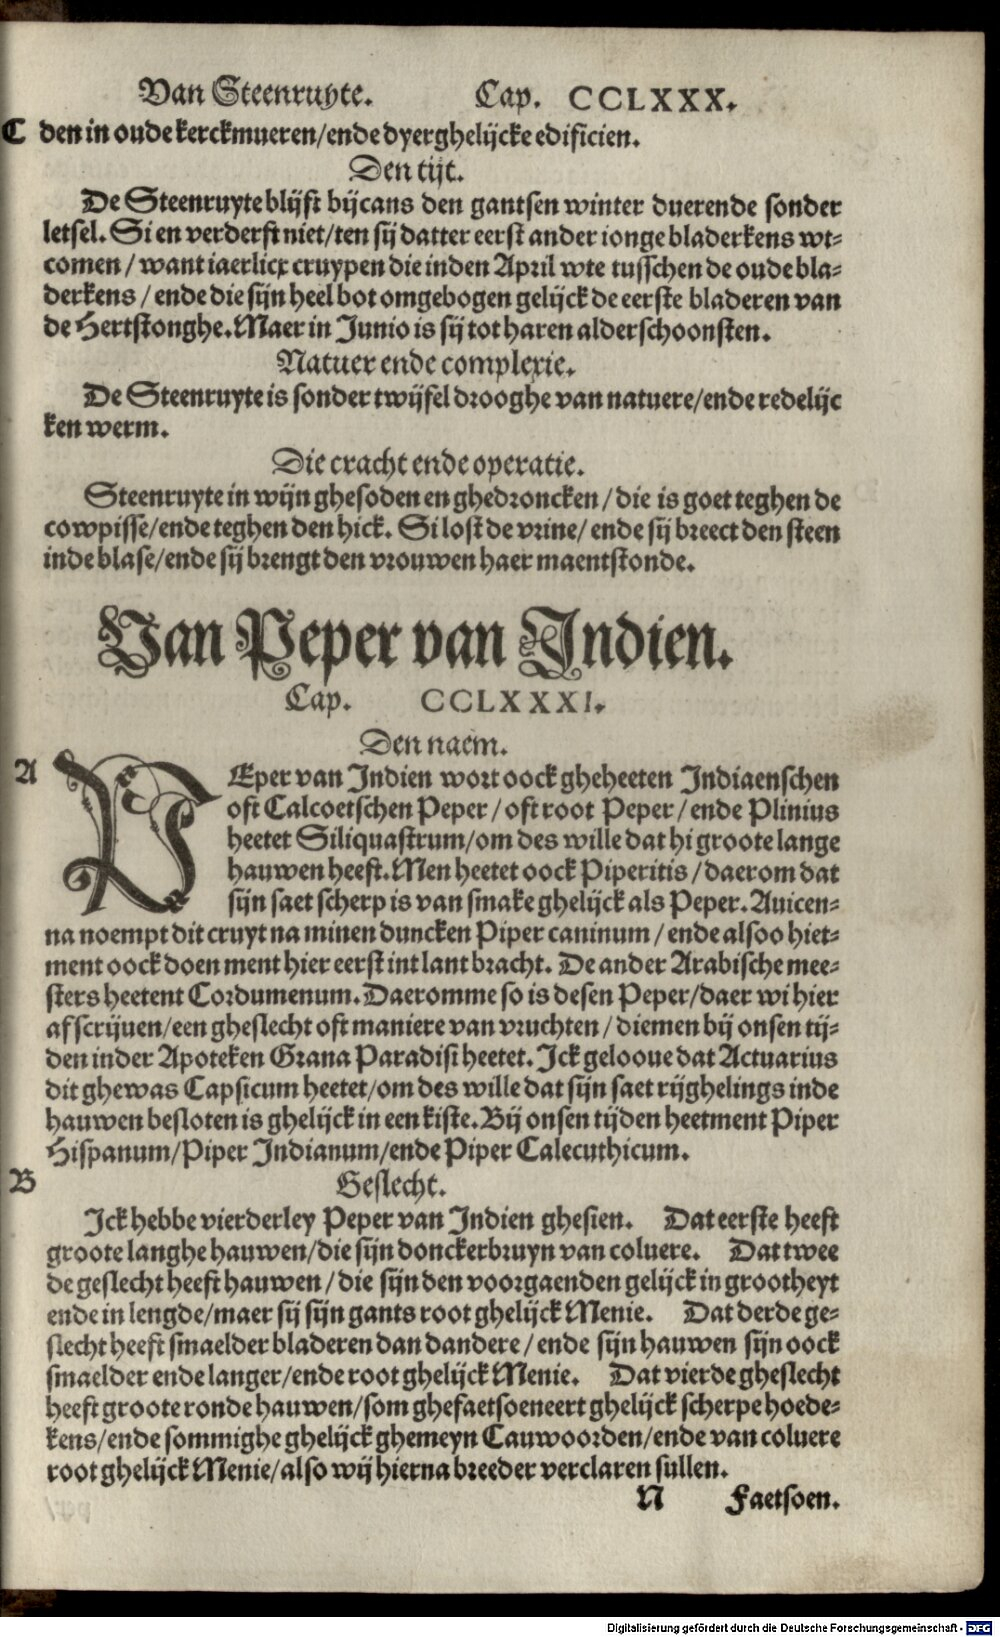 Van Steenruyte. Cap. CCLXXX.
C den in oude kerckmueren/ende dyerghelijcke edificien.
Den tijt.
De Steenruyte blijft bijcans den gantsen winter duerende sonder
letsel. Si en verderft niet/ten sij datter eerst ander ionge bladerkens wt-
comen/want iaerlicx cruypen die inden April wte tusschen de oude bla-
derkens/ende die sijn heel bot omgebogen gelijck de eerste bladeren van
de Hertstonghe. Maer in Junio is sij tot haren alderschoonsten.
Natuer ende complexie.
De Steenruyte is sonder twijfel drooghe van natuere/ende redelijc
ken werm.
Die cracht ende operatie.
Steenruyte in wijn ghesoden en ghedroncken/die is goet teghen de
cowpisse/ende teghen den hick. Si lost de vrine/ende sij breect den steen
inde blase/ende sij brengt den vrouwen haer maentstonde.
Van Peper van Indien.
Cap. CCLXXXI.
Den naem.
A PEper van Indien wort oock gheheeten Indiaenschen
oft Calcoetschen Peper/oft root Peper/ende Plinius
heetet Siliquastrum/om des wille dat hi groote lange
hauwen heeft. Men heetet oock Piperitis/daerom dat
sijn saet scherp is van smake ghelijck als Peper. Auicen-
na noempt dit cruyt na minen duncken Piper caninum/ende alsoo hiet-
ment oock doen ment hier eerst int lant bracht. De ander Arabische mee-
sters heetent Cordumenum. Daeromme so is desen Peper/daer wi hier
af scrijuen/een gheslecht oft maniere van vruchten/diemen bij onsen tij-
den inder Apoteken Grana Paradisi heetet. Ick geloove dat Actuarius
dit ghewas Capsicum heetet/om des wille dat sijn saet rijghelings inde
hauwen besloten is ghelijck in een kiste. Bij onsen tijden heetment Piper
Hispanum/Piper Indianum/ende Piper Calecuthicum.
B Geslecht.
Ick hebbe vierderley Peper van Indien ghesien. Dat eerste heeft
groote langhe hauwen/die sijn donckerbruyn van coluere. Dat twee
de geslecht heeft hauwen/die sijn den voorgaenden gelijck in grootheyt
ende in lengde/maer sij sijn gants root ghelijck Menie. Dat derde ge-
slecht heeft smaelder bladeren dan dandere/ende sijn hauwen sijn oock
smaelder ende langer/ende root ghelijck Menie. Dat vierde gheslecht
heeft groote ronde hauwen/som ghefaetsoeneert ghelijck scherpe hoede-
kens/ende sommighe ghelijck ghemeyn Cauwoorden/ende van coluere
root ghelijck Menie/also wij hierna breeder verclaren sullen.
N Faetsoen.
Digitalisierung gefördert durch die Deutsche Forschungsgemeinschaft - DFG